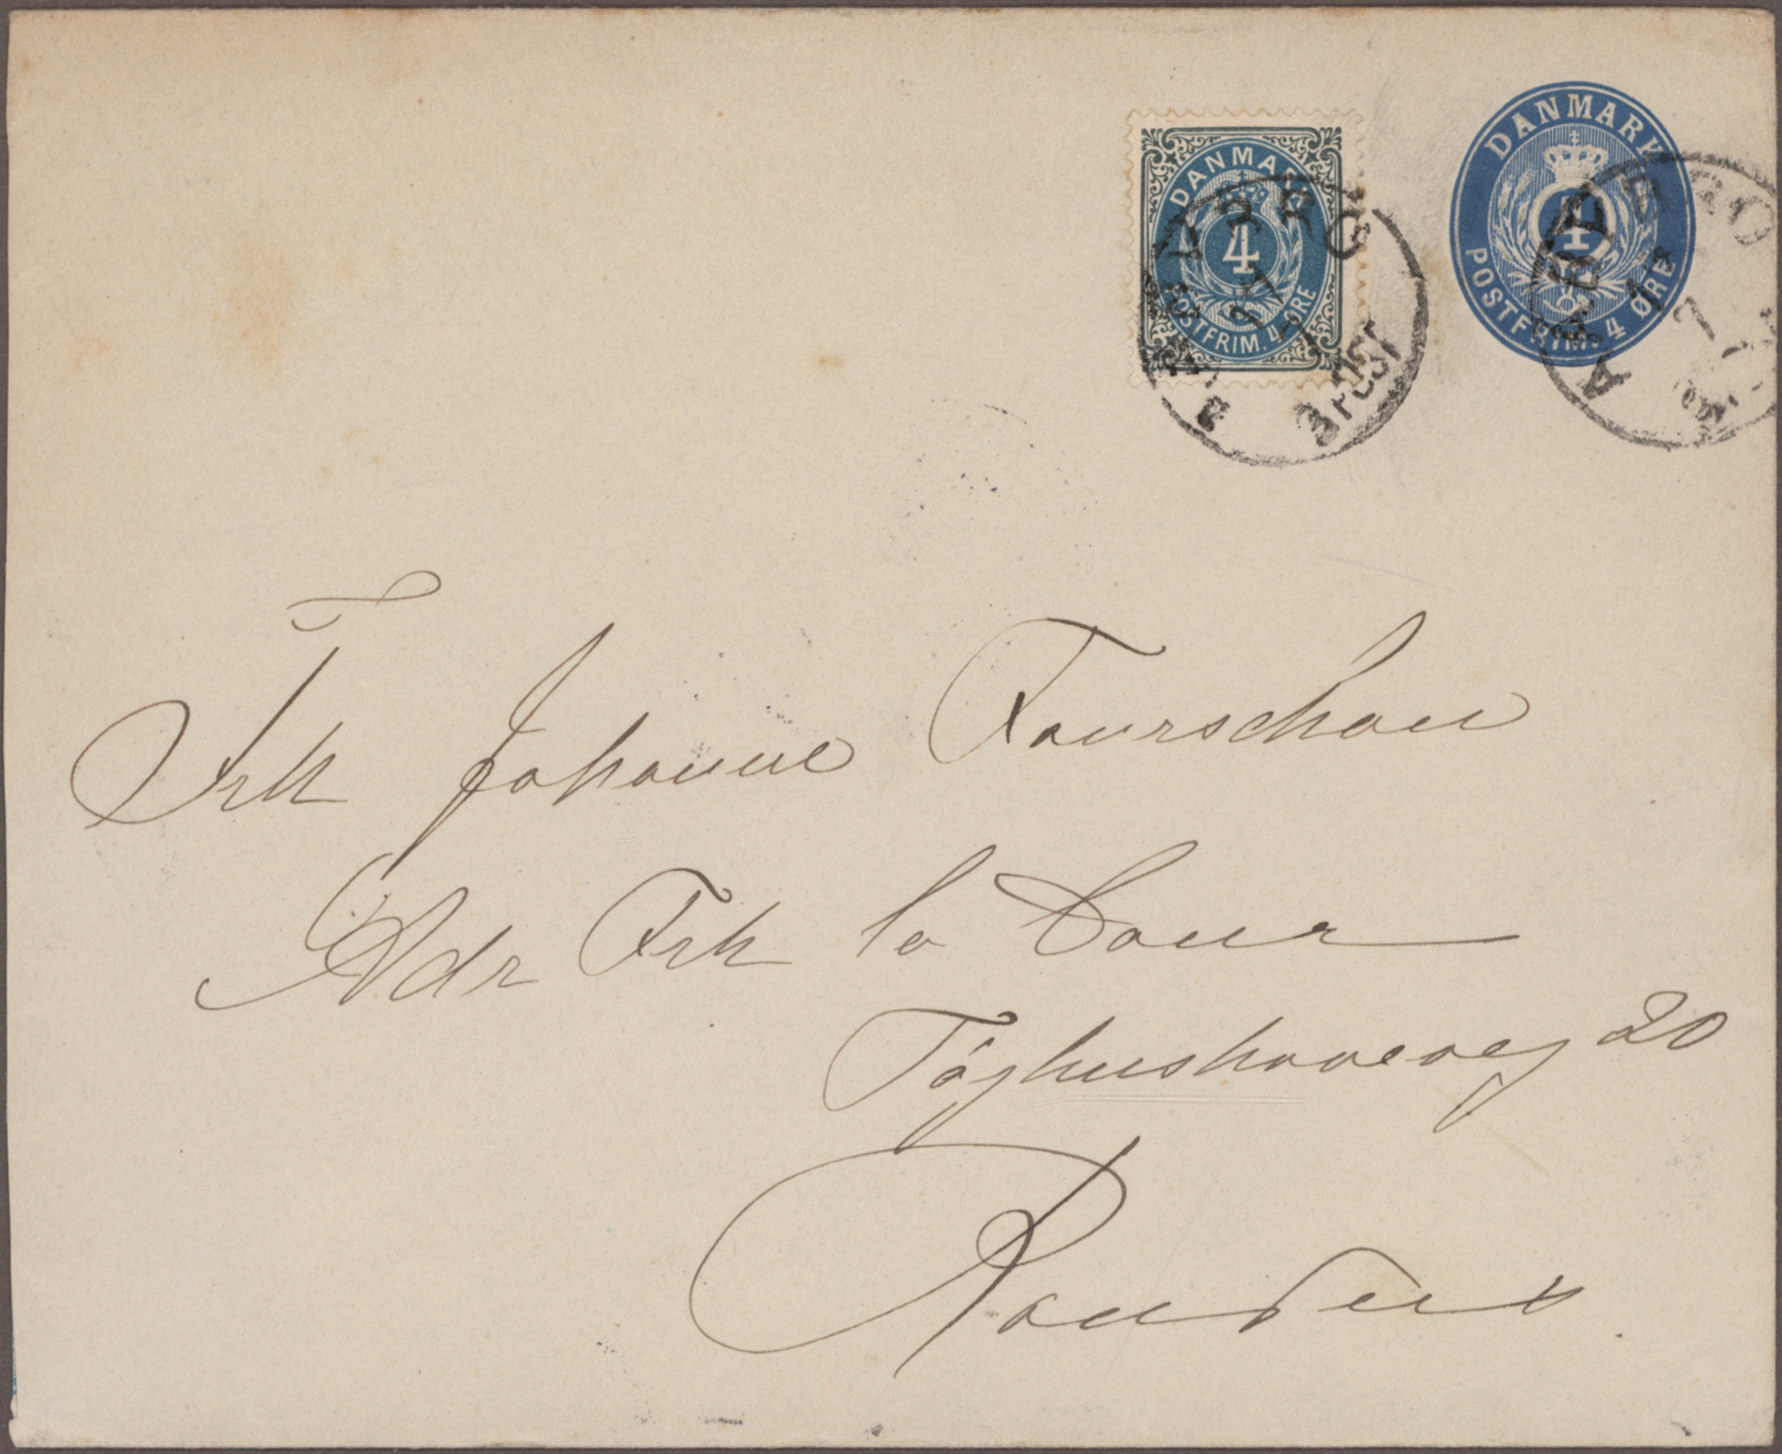 DANMARK
4
POSTFRIM. 4 ØRE
DANMARK
4
POSTFRIM. 4 ØRE
3 POST
Frk Johanne Faurschou
Adr Frk la Cour
Tøjhushavevej 20
Randers